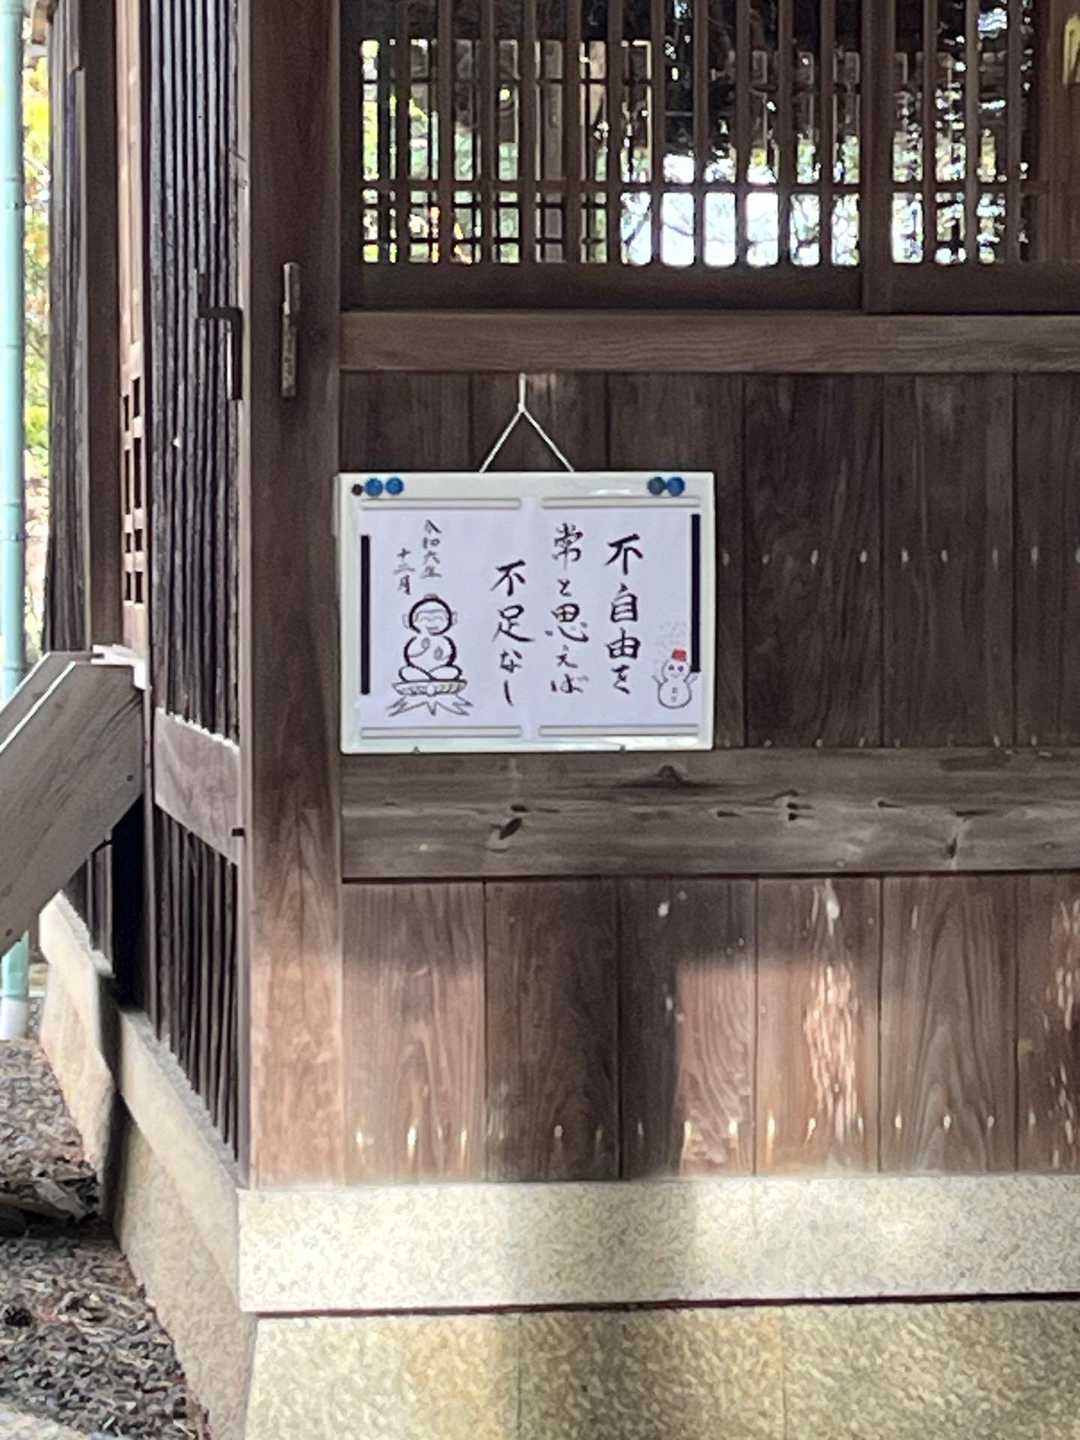 不自由を
常と思えば
不足なし
令和六年
十二月